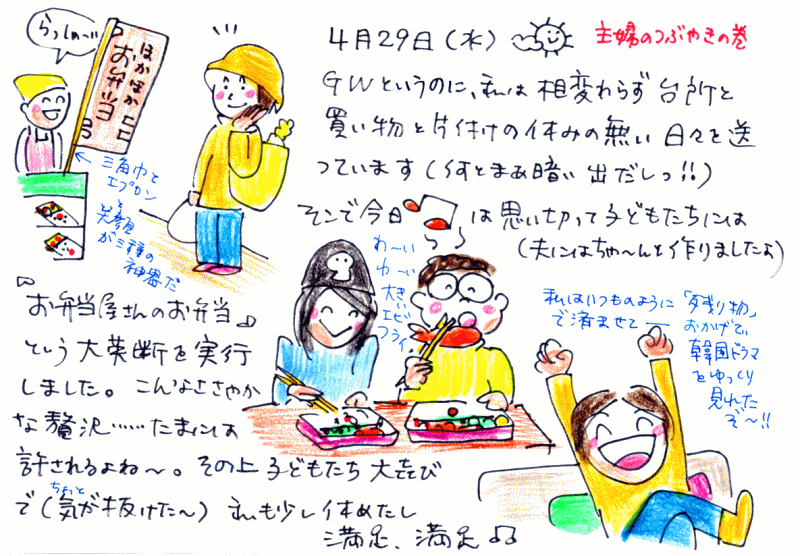 4月29日(水)
主婦のつぶやきの巻
らっしゃーい
ほかほか
お弁当
三角巾と
エプロン
と
笑顔
が三種の
神器だ
GWというのに、私は相変わらず台所と
買い物と片付けの休みの無い日々を送
っています(何とまあ暗い出だしっ!!)
そこで今日は思い切って子どもたちには
(夫にはちゃ〜んと作りましたよ)
『お弁当屋さんのお弁当』
という大英断を実行
しました。こんなささやか
な贅沢……たまには
許されるよね〜。その上子どもたち大喜び
で(ちょっと気が抜けた〜)私も少し休めたし
満足、満足♪
わーい
わーい
大きい
エビ
フライ
私はいつものように「残り物」
で済ませて―
おかげで、
韓国ドラマ
をゆっくり
見れた
ぞ〜!!